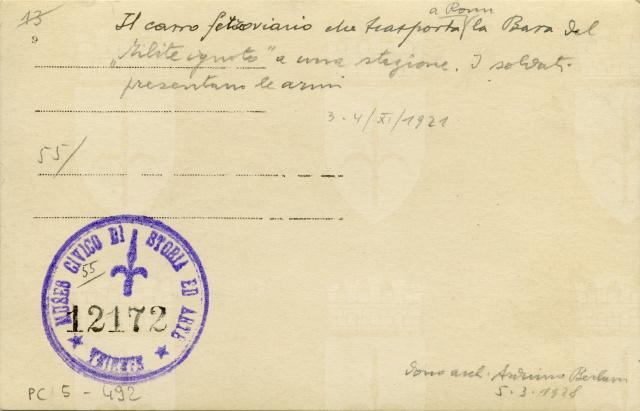 13
9
a Roma
Il carro ferroviario che trasporta la Bara del
„Milite ignoto" a una stazione. I soldati
presentano le armi
3-4/XI/1921
55/
MUSEO CIVICO DI STORIA ED ARTE
55
12172
TRIESTE
PC 5 - 492
Dono arch.
5.3.1928